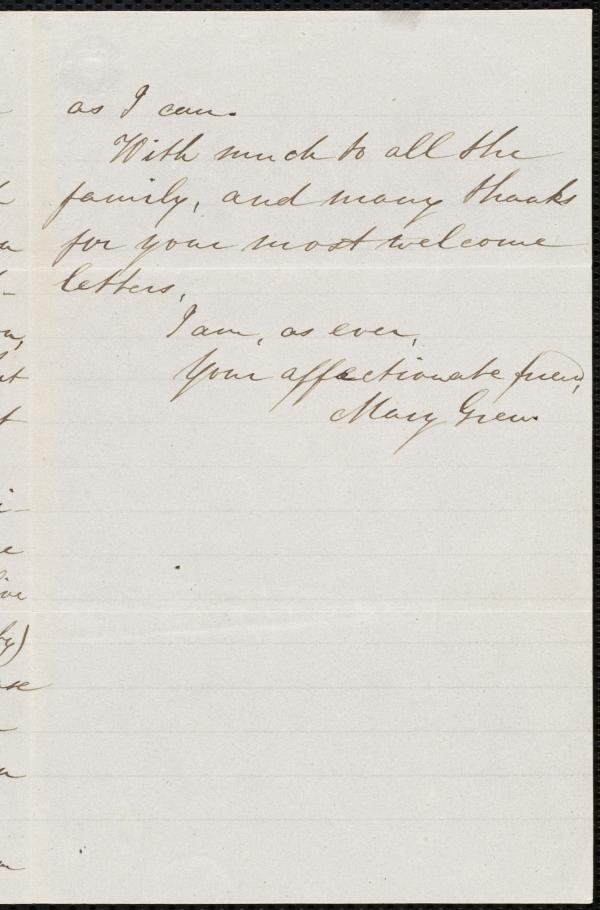 as I can.
With much to all the
family, and many thanks
for your most welcome
letters,
I am, as ever,
Your affectionate friend,
Mary Grew.